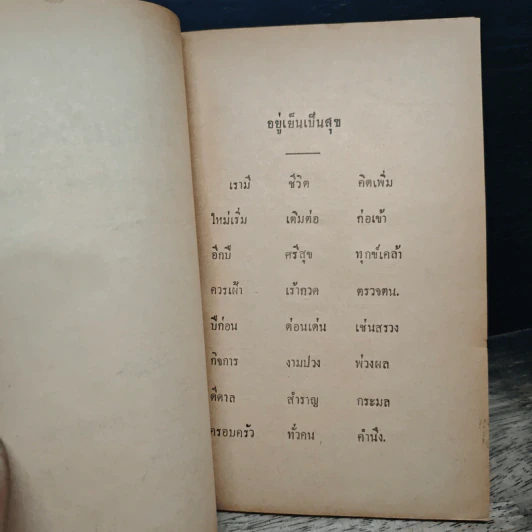 อยู่เย็นเป็นสุข
เรามี ชีวิต คิดเพิ่ม
ใหม่เริ่ม เติมต่อ ก่อเข้า
อีกปี ศรีสุข ทุกข์เคล้า
ควรเฝ้า เร้ากวด ตรวจตน.
ปีก่อน ต่อนเด่น เช่นสรวง
กิจการ งามปวง พ่วงผล
ดีดาล สำราญ กระมล
ครอบครัว ทั่วคน คำนึง.